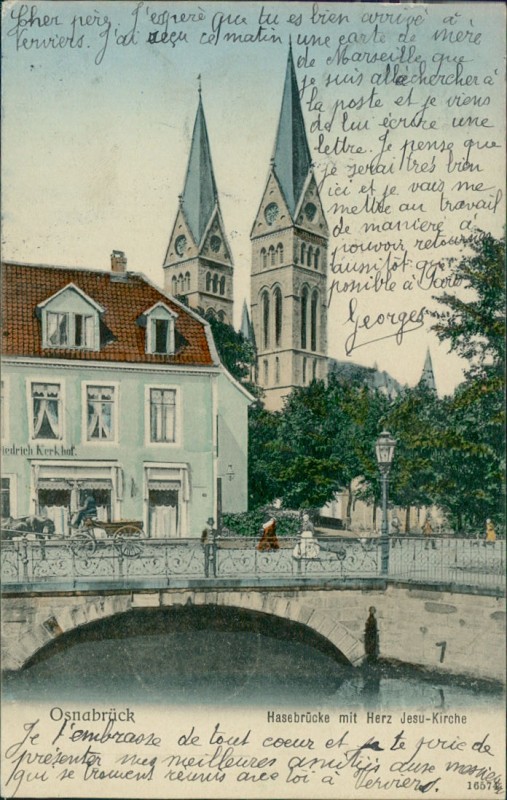 Cher père, J'espère que tu es bien arrivé à
Verviers. J'ai reçu ce matin une carte de mère
de Marseille que
je suis allé chercher à
la poste et je viens
de lui écrire une
lettre. Je pense que
je serai très bien
ici et je vais me
mettre au travail
de manière à
pouvoir retour
aussitôt que
possible à
Georges
iedrich Kerkhof.
1
Osnabrück
Hasebrücke mit Herz Jesu-Kirche
Je t'embrasse de tout coeur et je te prie de
présenter mes meilleures amitiés aux
qui se trouvent réunis avec toi à Verviers.